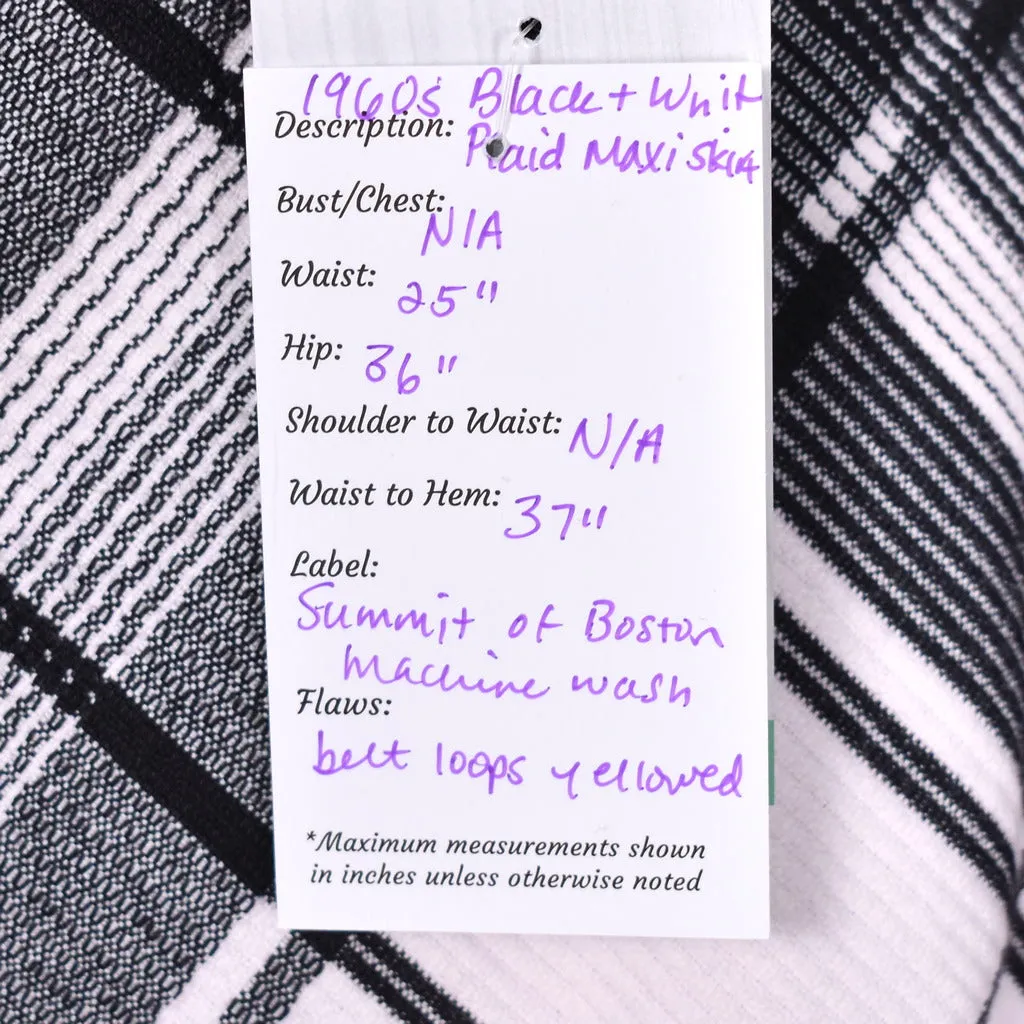 1960s Black + Whit
Description: Plaid Maxi skirt
Bust/Chest: N/A
Waist: 25"
Hip: 36"
Shoulder to Waist: N/A
Waist to Hem: 37"
Label:
Summit of Boston
Machine wash
Flaws:
belt loops yellowed
*Maximum measurements shown
in inches unless otherwise noted